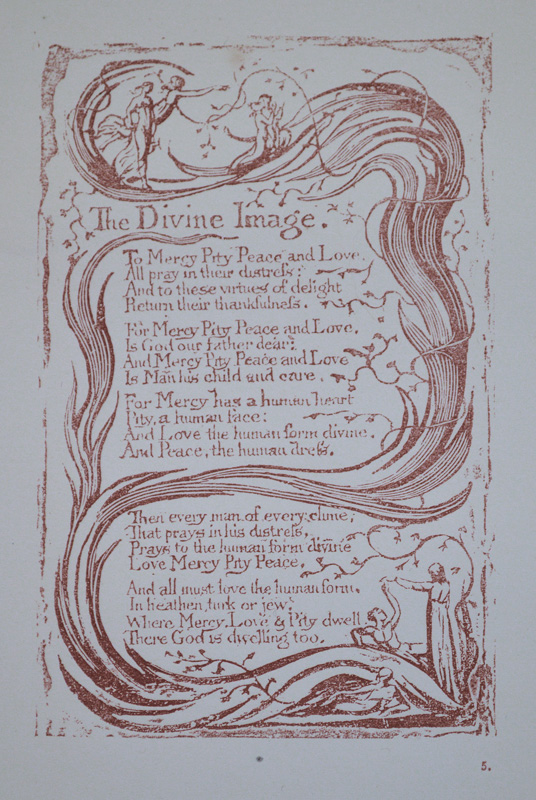 The Divine Image.
To Mercy Pity Peace and Love,
All pray in their distress:
And to these virtues of delight
Return their thankfulness.
For Mercy Pity Peace and Love,
Is God our father dear:
And Mercy Pity Peace and Love
Is Man his child and care.
For Mercy has a human heart
Pity, a human face:
And Love the human form divine,
And Peace, the human dress.
Then every man of every clime,
That prays in his distress,
Prays to the human form divine
Love Mercy Pity Peace.
And all must love the human form,
In heathen, turk or jew.
Where Mercy, Love & Pity dwell
There God is dwelling too.
5.